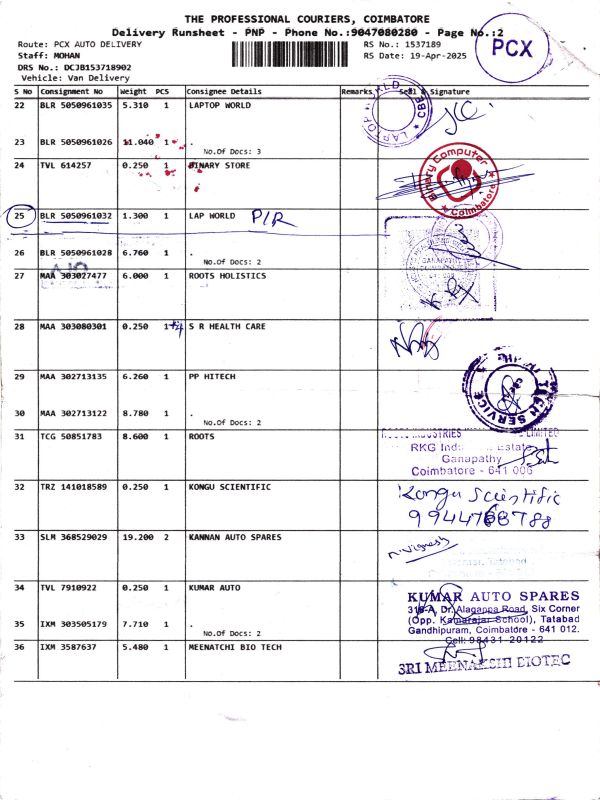 THE PROFESSIONAL COURIERS, COIMBATORE
Delivery Runsheet - PNP - Phone No.:9047080280 - Page No.:2
Route: PCX AUTO DELIVERY
RS No.: 1537189
PCX
Staff: MOHAN
RS Date: 19-Apr-2025
DRS No.: DCJB153718902
Vehicle: Van Delivery
S No Consignment No Weight PCS Consignee Details Remarks Seal & Signature
22 BLR 5050961035 5.310 1 LAPTOP WORLD
23 BLR 5050961026 11.040 1 .
No.Of Docs: 3
24 TVL 614257 0.250 1 BINARY STORE
Binary Computer
Coimbatore
25 BLR 5050961032 1.300 1 LAP WORLD P/R
26 BLR 5050961028 6.760 1 .
No.Of Docs: 2
27 MAA 303027477 6.000 1 ROOTS HOLISTICS
28 MAA 303080301 0.250 1 S R HEALTH CARE
29 MAA 302713135 6.260 1 PP HITECH
30 MAA 302713122 8.780 1 .
No.Of Docs: 2
31 TCG 50851783 8.600 1 ROOTS
INDUSTRIES LIMITED
RKG Estate
Ganapathy
Coimbatore - 641 006
32 TRZ 141018589 0.250 1 KONGU SCIENTIFIC
Kongu Scientific
33 SLM 368529029 19.200 2 KANNAN AUTO SPARES
34 TVL 7910922 0.250 1 KUMAR AUTO
KUMAR AUTO SPARES
316-A, Dr. Alagappa Road, Six Corner
(Opp. Kamarajar School), Tatabad
Gandhipuram, Coimbatore - 641 012.
Cell: 98431 20122
35 IXM 303505179 7.710 1 .
No.Of Docs: 2
36 IXM 3587637 5.480 1 MEENATCHI BIO TECH
SRI MEENAKSHI BIOTEC